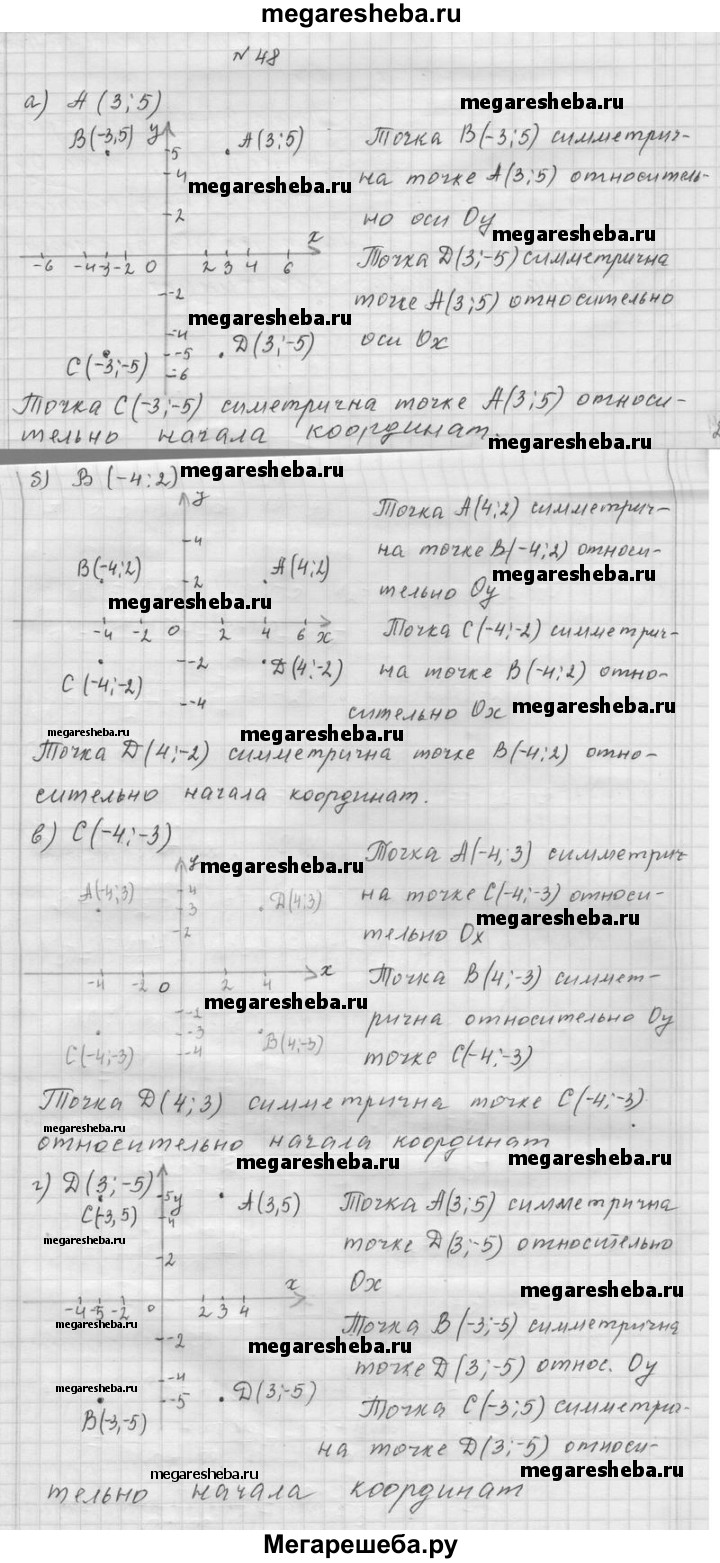 megaresheba.ru
№ 48
а) А (3; 5)
megaresheba.ru
В(-3,5) у А(3;5)
5
4
megaresheba.ru
2
х
-6 -4 -3 -2 0 2 3 4 6
-2
megaresheba.ru
-4
-5
-6
С(-3;-5) D(3;-5)
Точка В(-3;5) симметрич-
на точке А(3;5) относитель-
но оси Оу
megaresheba.ru
Точка D(3;-5) симметрична
точке А(3;5) относительно
оси Ох
Точка С(-3;-5) симетрична точке А(3;5) относи-
тельно начала координат.
megaresheba.ru
б) В (-4:2) megaresheba.ru
у
4
В(-4;2) 2 А(4;2)
megaresheba.ru
-4 -2 0 2 4 6 х
-2
С (-4;-2) D(4;-2)
-4
Точка А(4;2) симметрич-
на точке В(-4;2) относи-
megaresheba.ru
тельно Оу
Точка С(-4;-2) симметрич-
на точке В(-4;2) отно-
сительно Ох megaresheba.ru
megaresheba.ru
megaresheba.ru
Точка D(4;-2) симметрична точке В(-4;2) отно-
сительно начала координат.
в) С(-4;-3)
у megaresheba.ru
А(-4;3) 4 D(4;3)
3
2
-4 -2 0 2 4 х
megaresheba.ru
-3
-4
С(-4;-3) В(4;-3)
Точка А(-4;3) симметрич
на точке С(-4;-3) относи-
megaresheba.ru
тельно Ох
Точка В(4;-3) симмет-
рична относительно Оу
точке С(-4;-3)
Точка D(4;3) симметрична точке С(-4;-3)
megaresheba.ru
относительно начала координат
megaresheba.ru megaresheba.ru
г) D(3;-5)
5 у А(3,5)
С(-3,5) 4
megaresheba.ru
2
х
-4 -5 -2 0 2 3 4
megaresheba.ru
-2
megaresheba.ru
-4
megaresheba.ru
-5 D(3;-5)
В(-3,-5)
Точка А(3;5) симметрична
точке D(3;-5) относительно
Ох megaresheba.ru
Точка В(-3;-5) симметрична
точке D(3;-5) относ. Оу
Точка С(-3;5) симметрич-
на точке D(3;-5) относи-
megaresheba.ru megaresheba.ru
тельно начала координат
Мегарешеба.ру